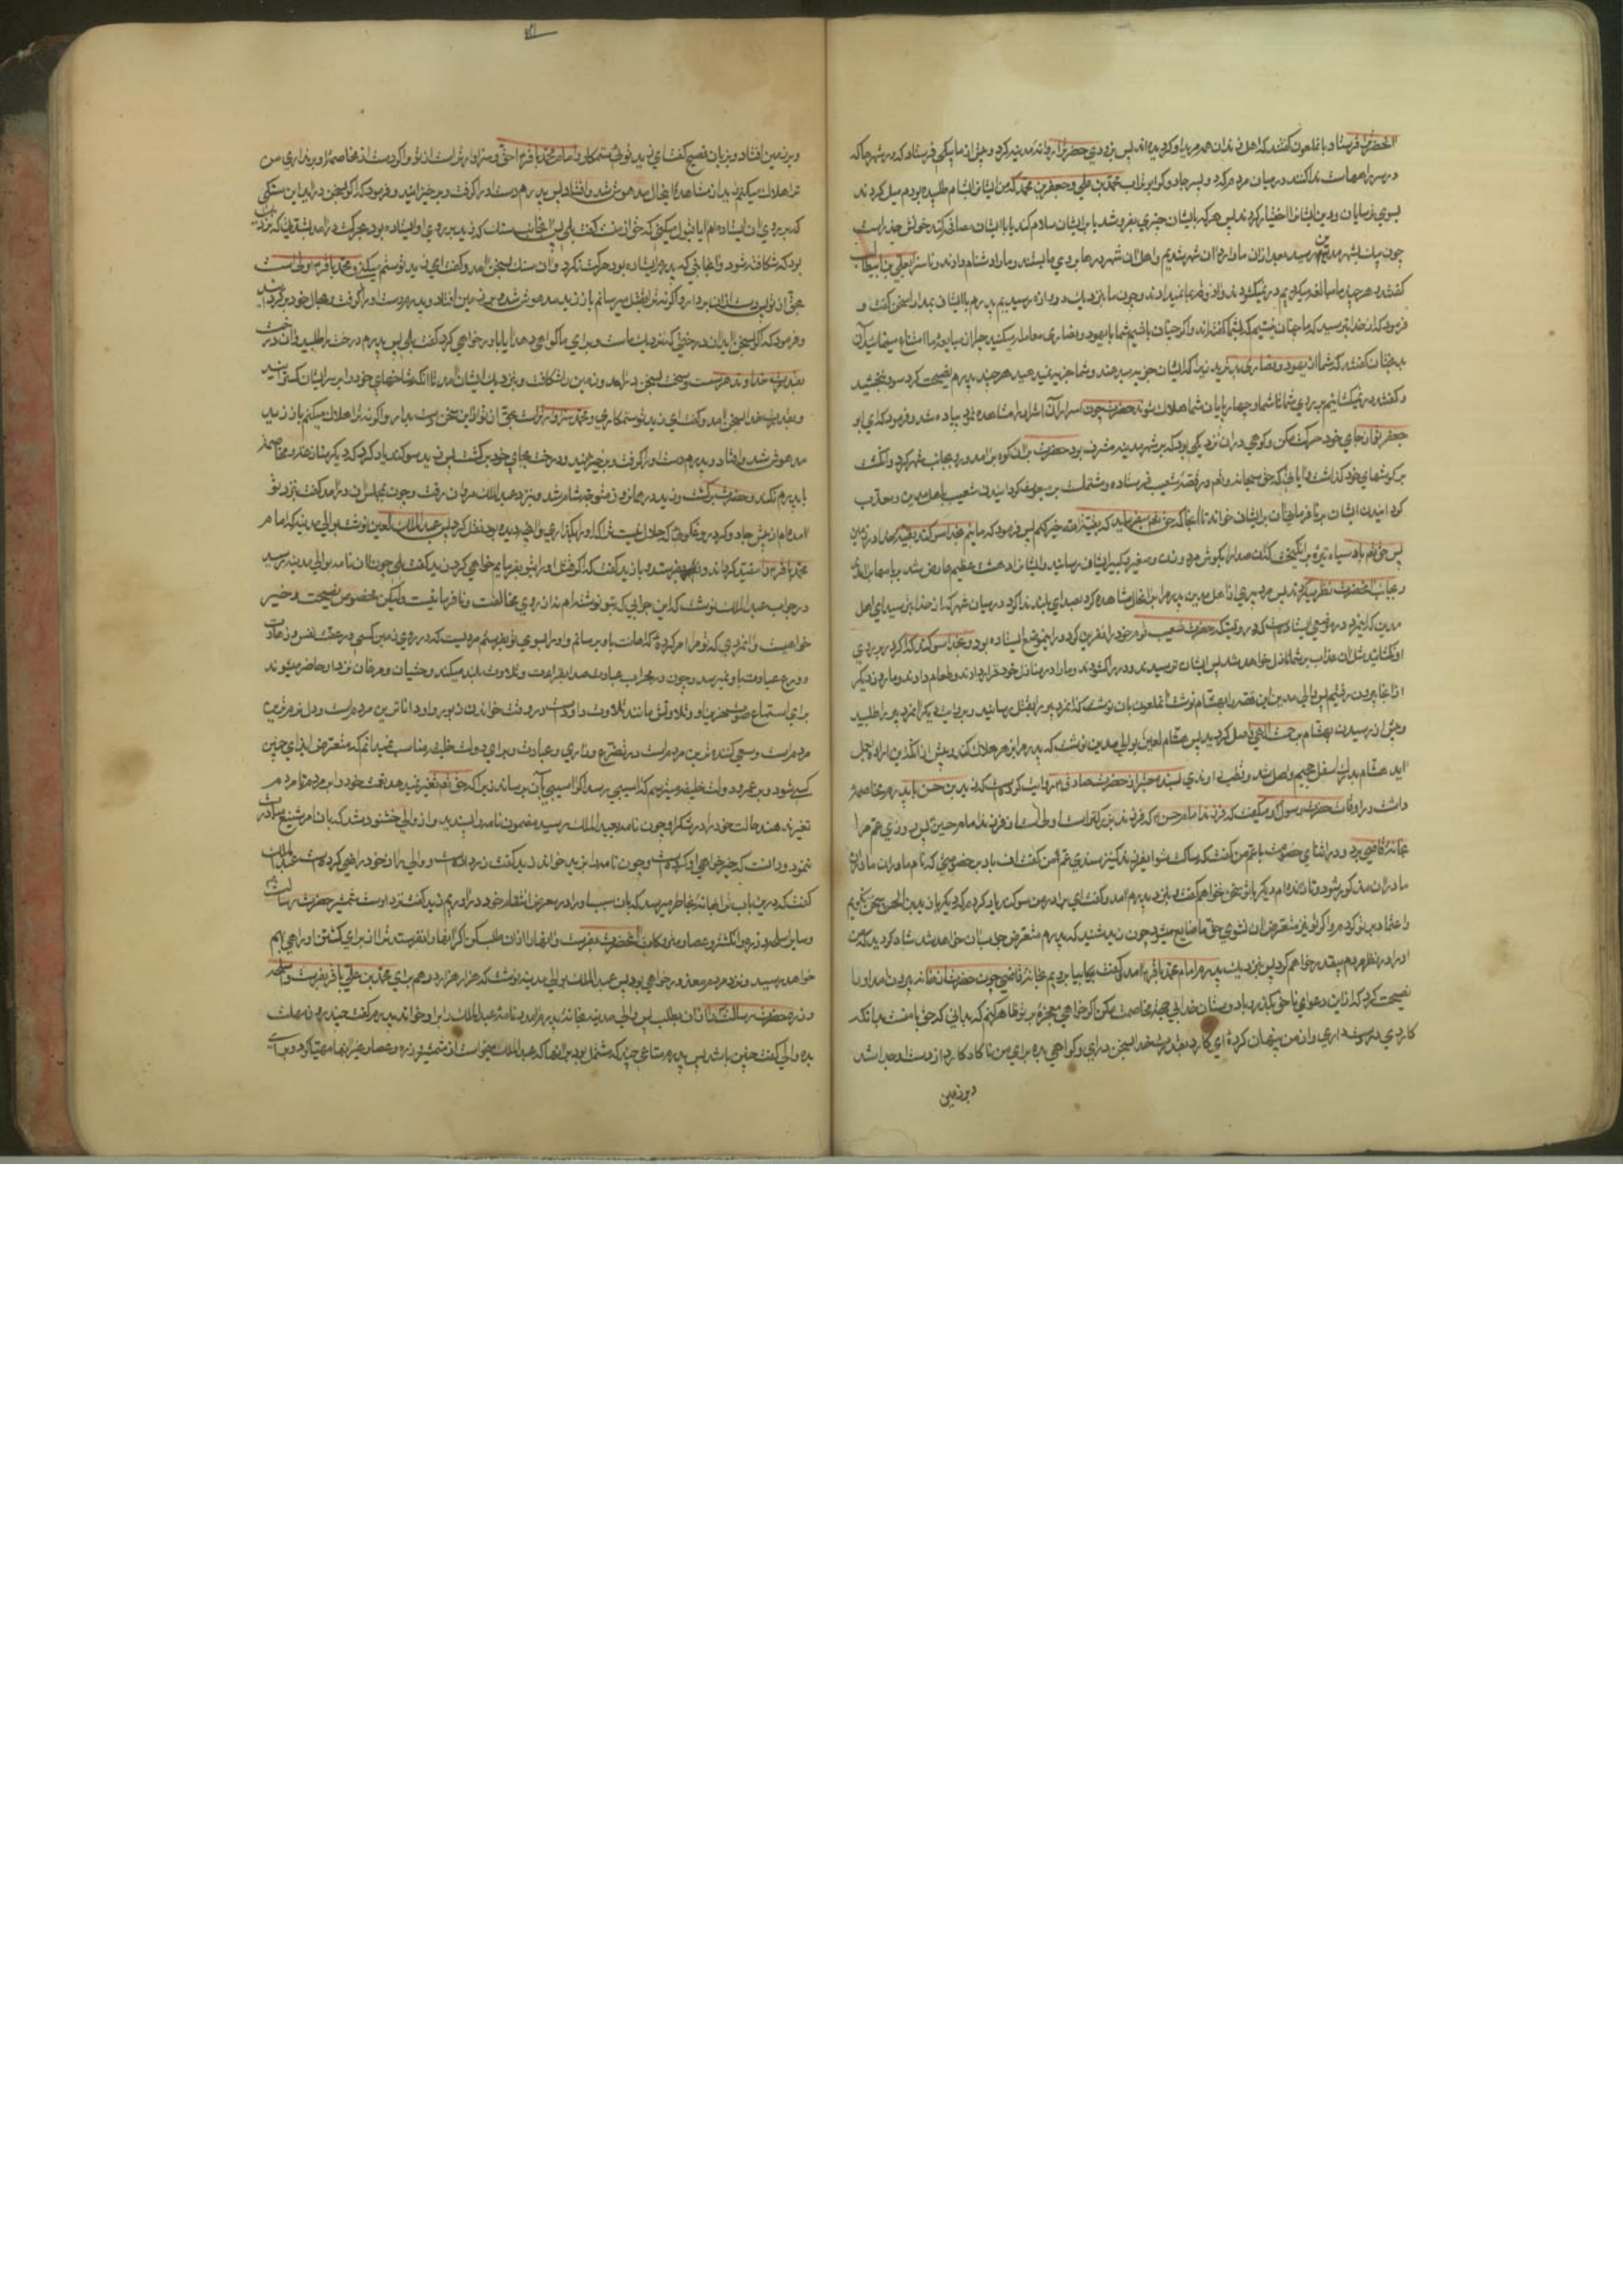 آنحضرت فرستاد با ملعون گفتند که اهل زندان همه مرید او گردیده‌اند پس بزودی حضرت را روانه مدینه کرد و پیش از ما پیکی فرستاد که در شهرها که
در سر راهها است ندا کنند در میان مردم که دو پسر جادوگر ابو تراب محمد بن علی و جعفر بن محمد که من ایشانرا بشام طلبیده بودم میل کردند
بسوی ترسایان و دین ایشانرا اختیار کردند پس هر که بایشان چیزی بفروشد یا بر ایشان سلام کند یا با ایشان مصافحه کند خونش هدر است
چون پیک بشهر مدین رسید بعد از آن ما وارد آن شهر شدیم و اهل آن شهر درها بر روی ما بستند و ما را دشنام دادند و ناسزا بعلی بن ابیطالب
گفتند هر چند ما مبالغه میکردیم در نمیگشودند و آذوقه بما نمیدادند و چون ما بنزدیک دروازه رسیدیم پدرم با ایشان بمدارا سخن گفت و
فرمود که از خدا بترسید که ما چنان نیستیم که بشما گفته‌اند و اگر چنان باشیم شما با یهود و نصاری معامله میکنید چرا از مبایعه ما امتناع مینمائید آن
بدبختان گفتند که شما از یهود و نصاری بدترید زیرا که ایشان جزیه میدهند و شما جزیه نمیدهید هر چند پدرم نصیحت کرد سود نبخشید
و گفتند در نمیگشائیم بر روی شما تا شما و چهارپایان شما هلاک شوند حضرت چون اصرار آن اشرار را مشاهده نمود پیاده شد و فرمود که ای
جعفر تو از جای خود حرکت مکن و کوهی در آن نزدیکی بود که بر شهر مدین مشرف بود حضرت بر آن کوه برآمد و رو بجانب شهر کرد و انگشت
بر گوشهای خود گذاشت و آیاتی که حق سبحانه و تعم در قصه شعیب فرستاده و مشتملست بر مبعوث گردانیدن شعیب باهل مدین و معذب
گردانیدن ایشان بنافرمانی آن بر ایشان خواند تا آنجا که حق تعم میفرماید که بقیة الله خیر لکم پس فرمود که مائیم بخدا سوگند بقیه خدا در زمین
پس حق تعم باد سیاه تیره برانگیخت که آن صدا را بگوش مرد و زن و صغیر و کبیر ایشان رسانید و ایشانرا دهشت عظیم عارض شد بر بامها برآمدند
و بجانب آنحضرت نظر میکردند پس مرد پیری از اهل مدین پدرم را بر آنحال مشاهده کرد بصدای بلند ندا کرد در میان شهر که از خدا بترسید ای اهل
مدین که اینمرد در موضعی ایستاده است که در وقتیکه حضرت شعیب قوم خود را نفرین کرد در این موضع ایستاده بود و بخدا سوگند که اگر در بروی
او نگشائید مثل آن عذاب بر شما نازل خواهد شد پس ایشان ترسیدند و در را گشودند و ما را در منازل خود فرود آوردند و طعام دادند و ما روز دیگر
از آنجا بیرون رفتیم پس والی مدین این قصه را بهشام نوشت آنملعون باو نوشت که آنمرد پیر را بقتل رسانید و بروایت دیگر آنمرد پیر را طلبید
و پیش از رسیدن بهشام برحمت الهی واصل گردید پس هشام لعین بوالی مدینه نوشت که پدرم را بزهر هلاک کند و پیش از آنکه این اراده بعمل
آید هشام بدرک اسفل جحیم واصل شد و قطب راوندی بسند معتبر از حضرت صادق ع روایت کرده است که زید بن حسن با پدرم مخاصمه
داشت در اوقاف حضرت رسول و میگفت که فرزند امام حسن ع که فرزند بزرگتر است اولی است از فرزند امام حسین پس روزی عم مرا
بخانه قاضی برد و در اثنای خصومت با عم من گفت که ساکت شو ای فرزند کنیز سندی عم من گفت اف باد بر خصومتی که نام مادران
مادران مذکور شود و تا زنده‌ام دیگر با تو سخن نخواهم گفت و بنزد پدرم آمد و گفت ای برادر من سوگند یاد کردم که دیگر با زید بن الحسن سخن نگویم
و اعتماد بر تو کردم و اگر تو نیز متعرض او نشوی حق ما ضایع میشود چون زید شنید که پدرم متعرض جواب او خواهد شد شاد گردید که من
او را در نظر مردم بیقدر خواهم کرد پس بنزدیک پدرم امام محمد باقر ع آمد و گفت بیا برویم بخانه قاضی چون حضرت از خانه بیرون آمد او را
نصیحت کرد که از این دعوای ناحق بگذر و با دوستان خدا بی جهة مخاصمت مکن اگر خواهی معجزه بر تو ظاهر کنم که بدانی که حق با منست بدانکه
کاردی در دست داری و از من پنهان کردهٔ ای کارد بقدرت خدا بسخن درآی و گواهی بده برای من ناگاه کارد از دست او جدا شد
و بر زمین
و بر زمین افتاد و بزبان فصیح گفت ای زید تو ستمکاری و امام محمد باقر احق و سزاوارتر است از تو و اگر دست از مخاصمه او برنداری من
ترا هلاک میکنم زید از مشاهده اینحال مدهوش شد و افتاد پس پدرم دست او را گرفت و برخیزانید و فرمود که اگر بسخن درآید این سنگی
که بر روی آن ایستاده‌ام آیا قبول میکنی که حق از منست گفت بلی پس آنجانب سنگ که زید بر روی او ایستاده بود بحرکت درآمد بمرتبه که نزدیک
بود که شکافته شود و آنجانبی که پدرم ایستاده بود حرکت نکرد و آن سنگ بسخن آمد و گفت ای زید تو ستم میکنی و محمد باقر اولی است
بحق از تو پس دست از او بردار و اگر نه ترا بقتل میرسانم باز زید مدهوش شده بر زمین افتاد و پدرم دست او را گرفت و بحال خود برگردانید
و فرمود که اگر بسخن آید آن درختی که نزدیک ماست و برای ما گواهی دهد آیا باور خواهی کرد گفت بلی پس پدرم درخت را طلبید و آن درخت
بقدرت خداوند بسخن درآمد و زمین را شکافت و بنزدیک ایشان آمد تا آنکه شاخهای خود را بر سر ایشان گسترانید
و بقدرت خدا بسخن آمد و گفت ای زید تو ستمکاری و محمد سزاوارتر است بحق از تو از این سخن دست بدار و اگر نه ترا هلاک میکنم باز زید
مدهوش شد و افتاد و پدرم دست او را گرفت و برخیزانید و درخت بجای خود برگشت پس زید سوگند یاد کرد که دیگر متعرض و مخاصمه
با پدرم نکند و حضرت برگشت و زید در همانروز متوجه شام شد و بنزد عبدالملک مروان رفت و چون بمجلس او درآمد گفت بنزد تو
آمده‌ام از پیش جادوگر دروغگوئی که حلال نیست ترا که او را بگذاری و آنچه دیده بود نقل کرد پس عبدالملک لعین نوشت بوالی مدینه که امام
محمد باقر را مقید گرداند و بفرستد و با زید گفت که اگر قتل او را بتو بفرمایم خواهی کرد زید گفت بلی چون آن نامه بوالی مدینه رسید
در جواب عبدالملک نوشت که این جوابی که بتو نوشته‌ام نه از روی مخالفت و نافرمانیست ولیکن محض نصیحت و خیر
خواهیست و آنمردی که تو مرا امر کردهٔ که اهانت باو برسانم و او را بسوی تو بفرستم مردیست که در روی زمین کسی در عفت نفس و زهادت
و ورع عبادت باو نمیرسد و چون در محراب عبادت صدا بقرائت و تلاوت بلند میکند وحشیان و مرغان نزد او حاضر میشوند
برای استماع صوت حزین او و تلاوتش مانند تلاوت داود است در وقت خواندن زبور و او داناترین مردم است و دل نرمترین
مردم است و سعی کننده ترین مردم است در تضرع و زاری و عبادت و برای دولت خلیفه مناسب نمیدانم که متعرض ایذای چنین
کسی شود و بر عمر و دولت خلیفه میترسم که آسیبی برسد اگر آسیبی بآن برساند زیرا که حق تعم تغییر نمیدهد نعمت خود را بر مردم تا مردم
تغییر ندهند حالت خود را در شکر او چون نامه بعبدالملک رسید مضمون نامه را پسندید و از والی خشنود شد که بآن امر شنیع مبادرت
ننمود و دانست که خیرخواهی او کرده است و چون نامه را بزید خواند زید گفت زر داده است و والی را از خود راضی کرده است عبدالملک
گفت که در این باب ترا بهانه بخاطر میرسد که بآن سبب او را در معرض انتقام خود درآوریم زید گفت نزد اوست شمشیر حضرت رسالت
و سایر اسلحه و زره و انگشتر و عصا و متروکات آنحضرت بفرست و آنها را از او طلب کن اگر آنها را نفرستد ترا از برای کشتن او راهی بهم
خواهد رسید و نزد مردم معذور خواهی بود پس عبدالملک بوالی مدینه نوشت که هزار هزار درهم برای محمد بن علی باقر بفرست و اسلحه
و زره حضرت رسالت را از او بطلب پس والی مدینه بخانه پدرم آمد و نامه عبدالملک را بر او خواند پدرم گفت چند روز مهلت
بده والی گفت چنین باشد پس پدرم متاعی چند که مشتمل بود بر آنها که عبدالملک میخواست از شمشیر و زره و عصا و غیر آنها مهیا کرد و برای